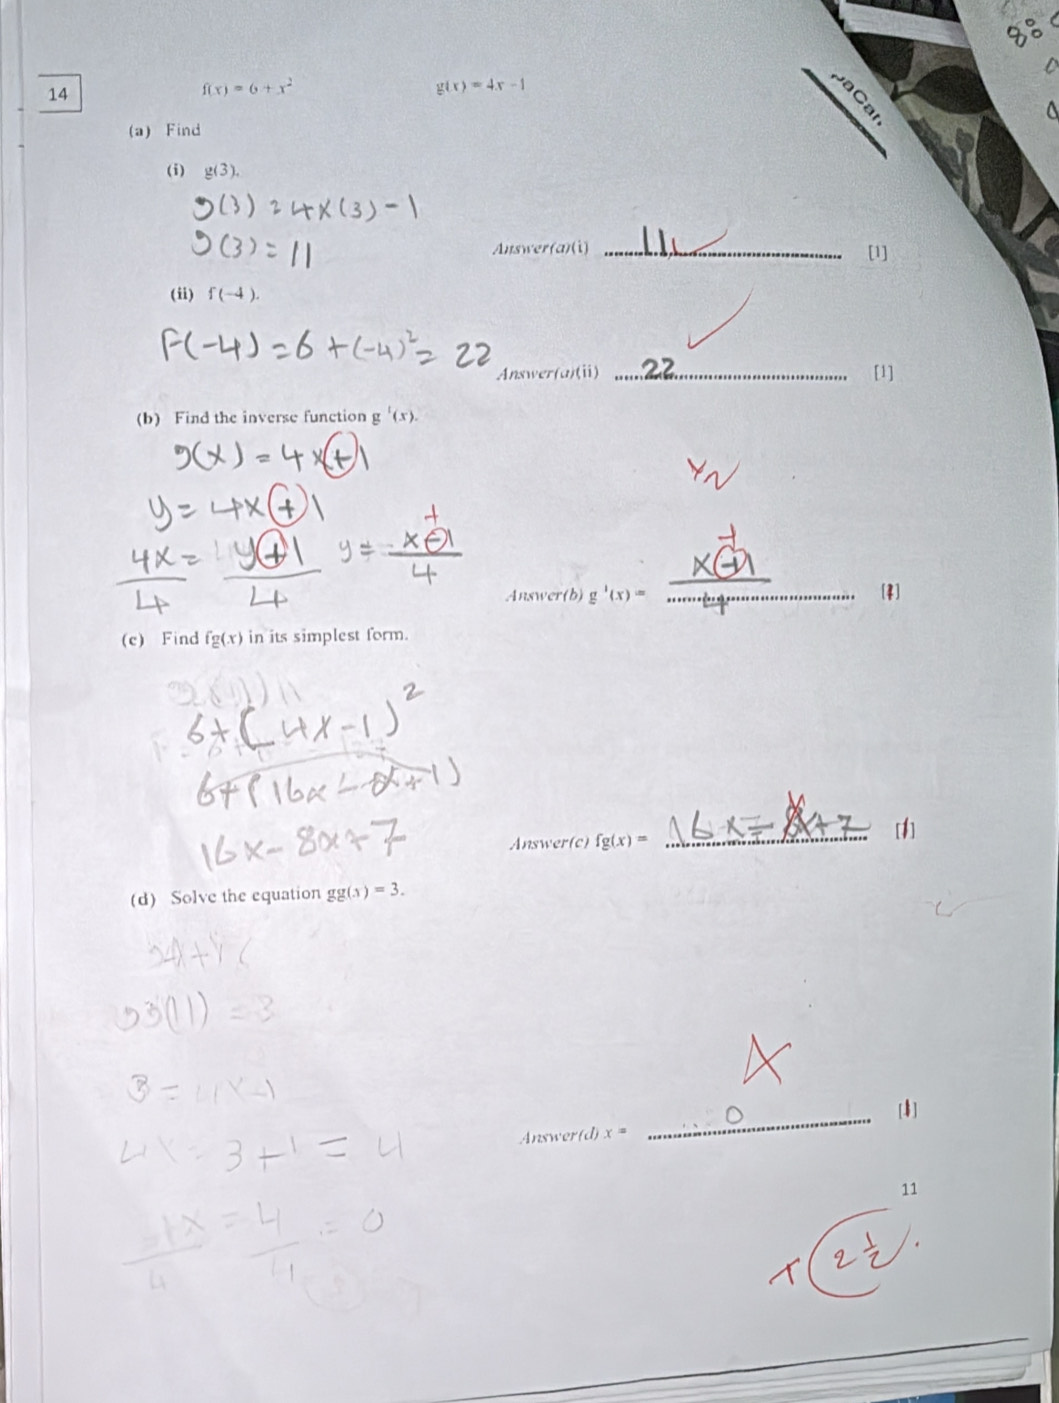 14
f(x) = 6 + x² g(x) = 4x - 1
(a) Find
(i) g(3).
g(3) = 4x(3) - 1
g(3) = 11
Answer(a)(i) 11 [1]
(ii) f(-4).
F(-4) = 6 + (-4)² = 22
Answer(a)(ii) 22 [1]
(b) Find the inverse function g⁻¹(x).
g(x) = 4x + 1
y = 4x + 1
4x/4 = y+1/4 y = x-1/4
Answer(b) g⁻¹(x) = x+1/4
(c) Find fg(x) in its simplest form.
6 + (4x - 1)²
6 + (16x - 8x + 1)
16x - 8x + 7
Answer(c) fg(x) = 16x - 8x + 7 [1]
(d) Solve the equation gg(x) = 3.
gg(11) = 3
3 = 4x-1
4x = 3+1 = 4
4x/4 = 4/4 = 0
Answer(d) x = 0 [1]
11
2 1/2